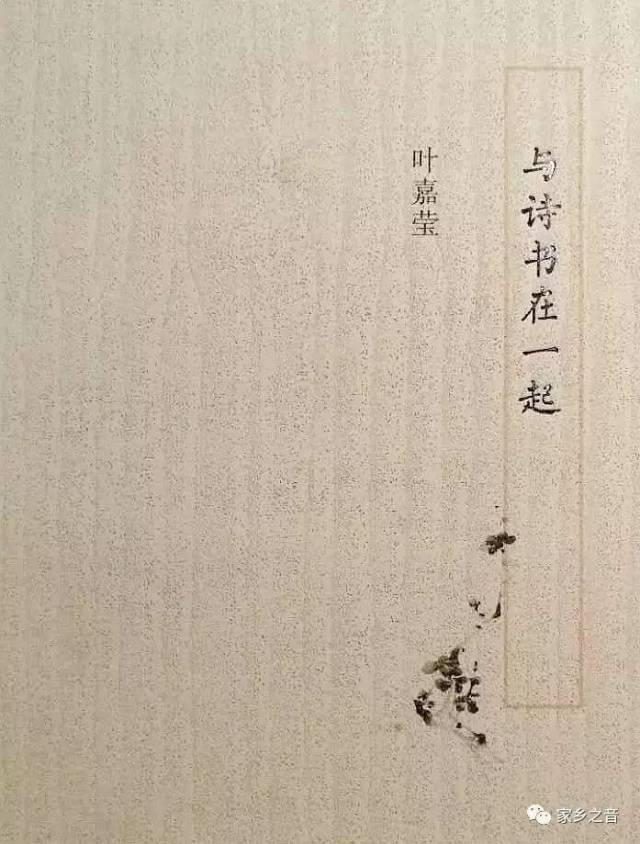 与诗书在一起
叶嘉莹
家乡之音